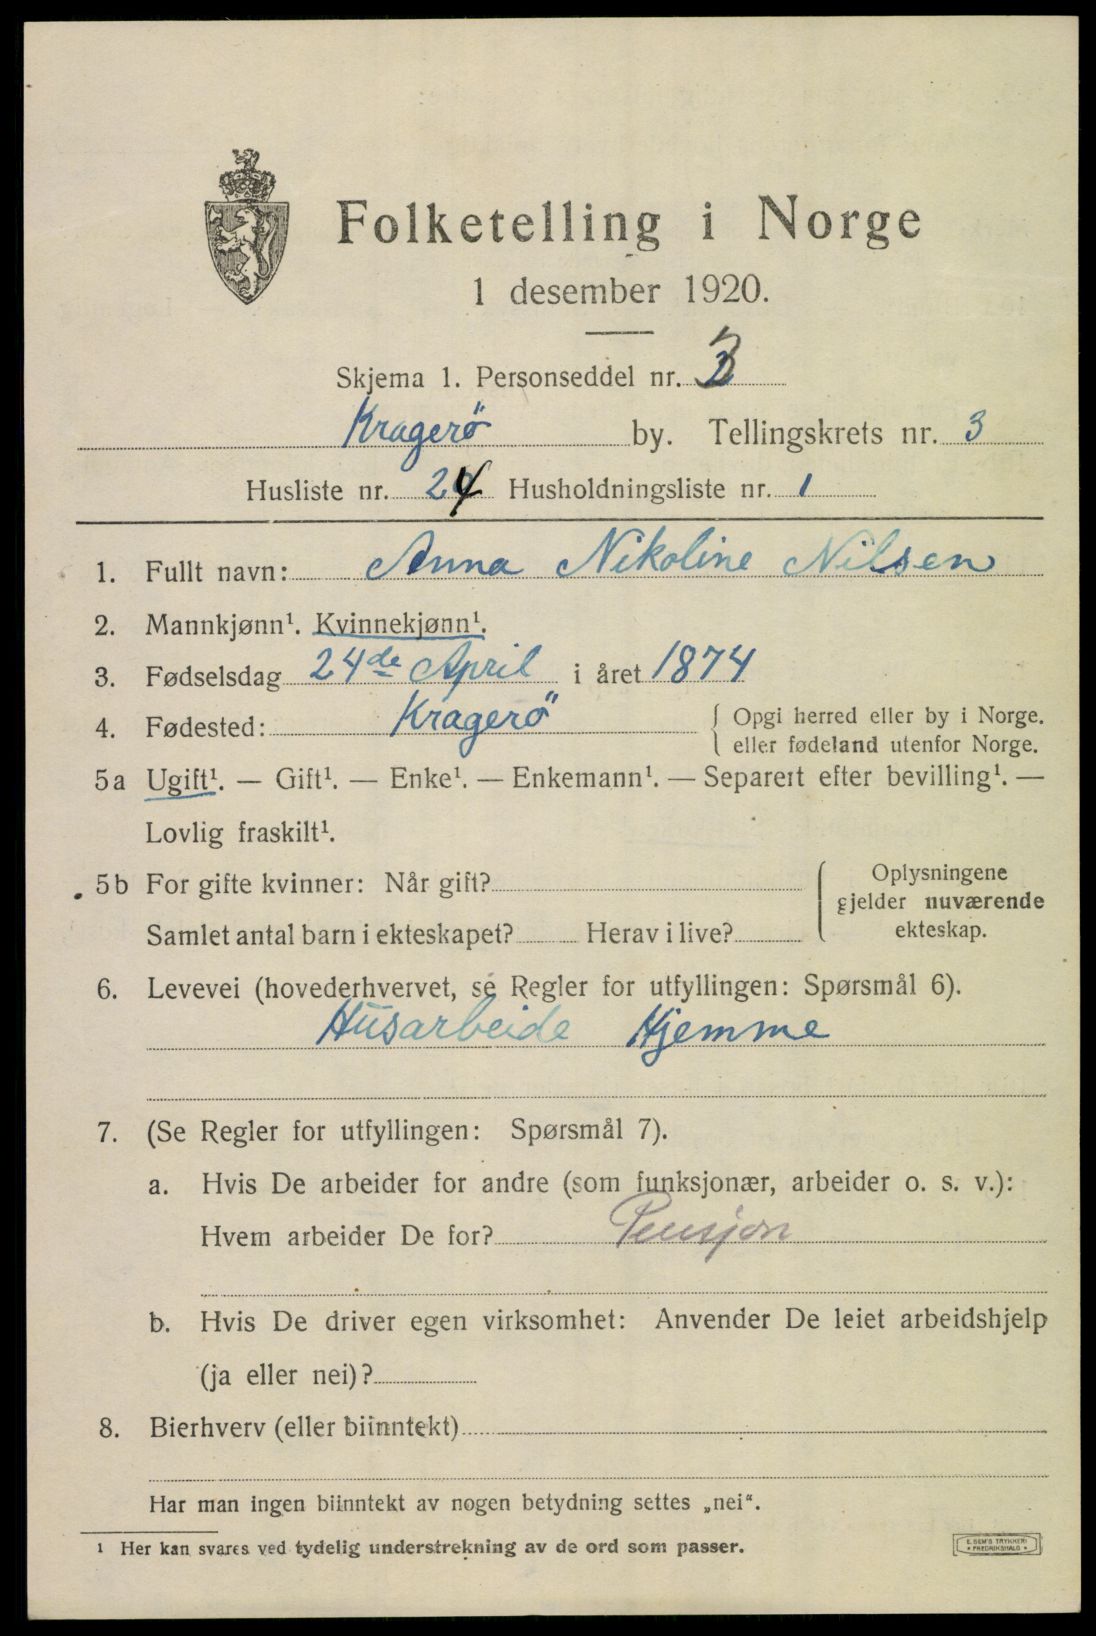 Folketelling i Norge
1 desember 1920.
Skjema 1. Personseddel nr. 3
Kragerö by. Tellingskrets nr. 3
Husliste nr. 24 Husholdningsliste nr. 1
1. Fullt navn: Anna Nikoline Nilsen
2. Mannkjønn¹. Kvinnekjønn¹.
3. Fødselsdag 24de April i året 1874
4. Fødested: Kragerö { Opgi herred eller by i Norge.
eller fødeland utenfor Norge.
5a Ugift¹. — Gift¹. — Enke¹. — Enkemann¹. — Separert efter bevilling¹. —
Lovlig fraskilt¹.
5b For gifte kvinner: Når gift?
Samlet antal barn i ekteskapet? Herav i live?
Oplysningene
gjelder nuværende
ekteskap.
6. Levevei (hovederhvervet, se Regler for utfyllingen: Spørsmål 6).
Husarbeide Hjemme
7. (Se Regler for utfyllingen: Spørsmål 7).
a. Hvis De arbeider for andre (som funksjonær, arbeider o. s. v.):
Hvem arbeider De for? Pensjon
b. Hvis De driver egen virksomhet: Anvender De leiet arbeidshjelp
(ja eller nei)?
8. Bierhverv (eller biinntekt)
Har man ingen biinntekt av nogen betydning settes „nei“.
¹ Her kan svares ved tydelig understrekning av de ord som passer.
E. SEM'S TRYKKERI
* FREDRIKSHALD *